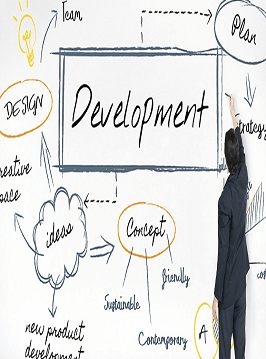 Team
Plan
DESIGN
Development
strategy
creative
space
ideas
Concept
friendly
Sustainable
Contemporary
new product
development
A